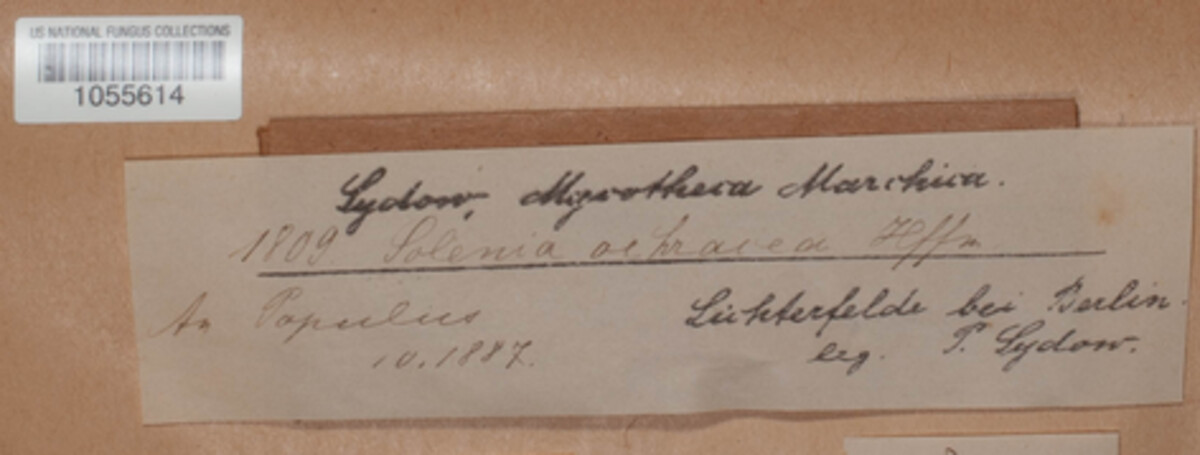 US NATIONAL FUNGUS COLLECTIONS
1055614
Sydow, Mycotheca Marchica.
1809 Solenia ochracea Hffm
An Populus
10.1887.
Lichterfelde bei Berlin.
leg. P. Sydow.